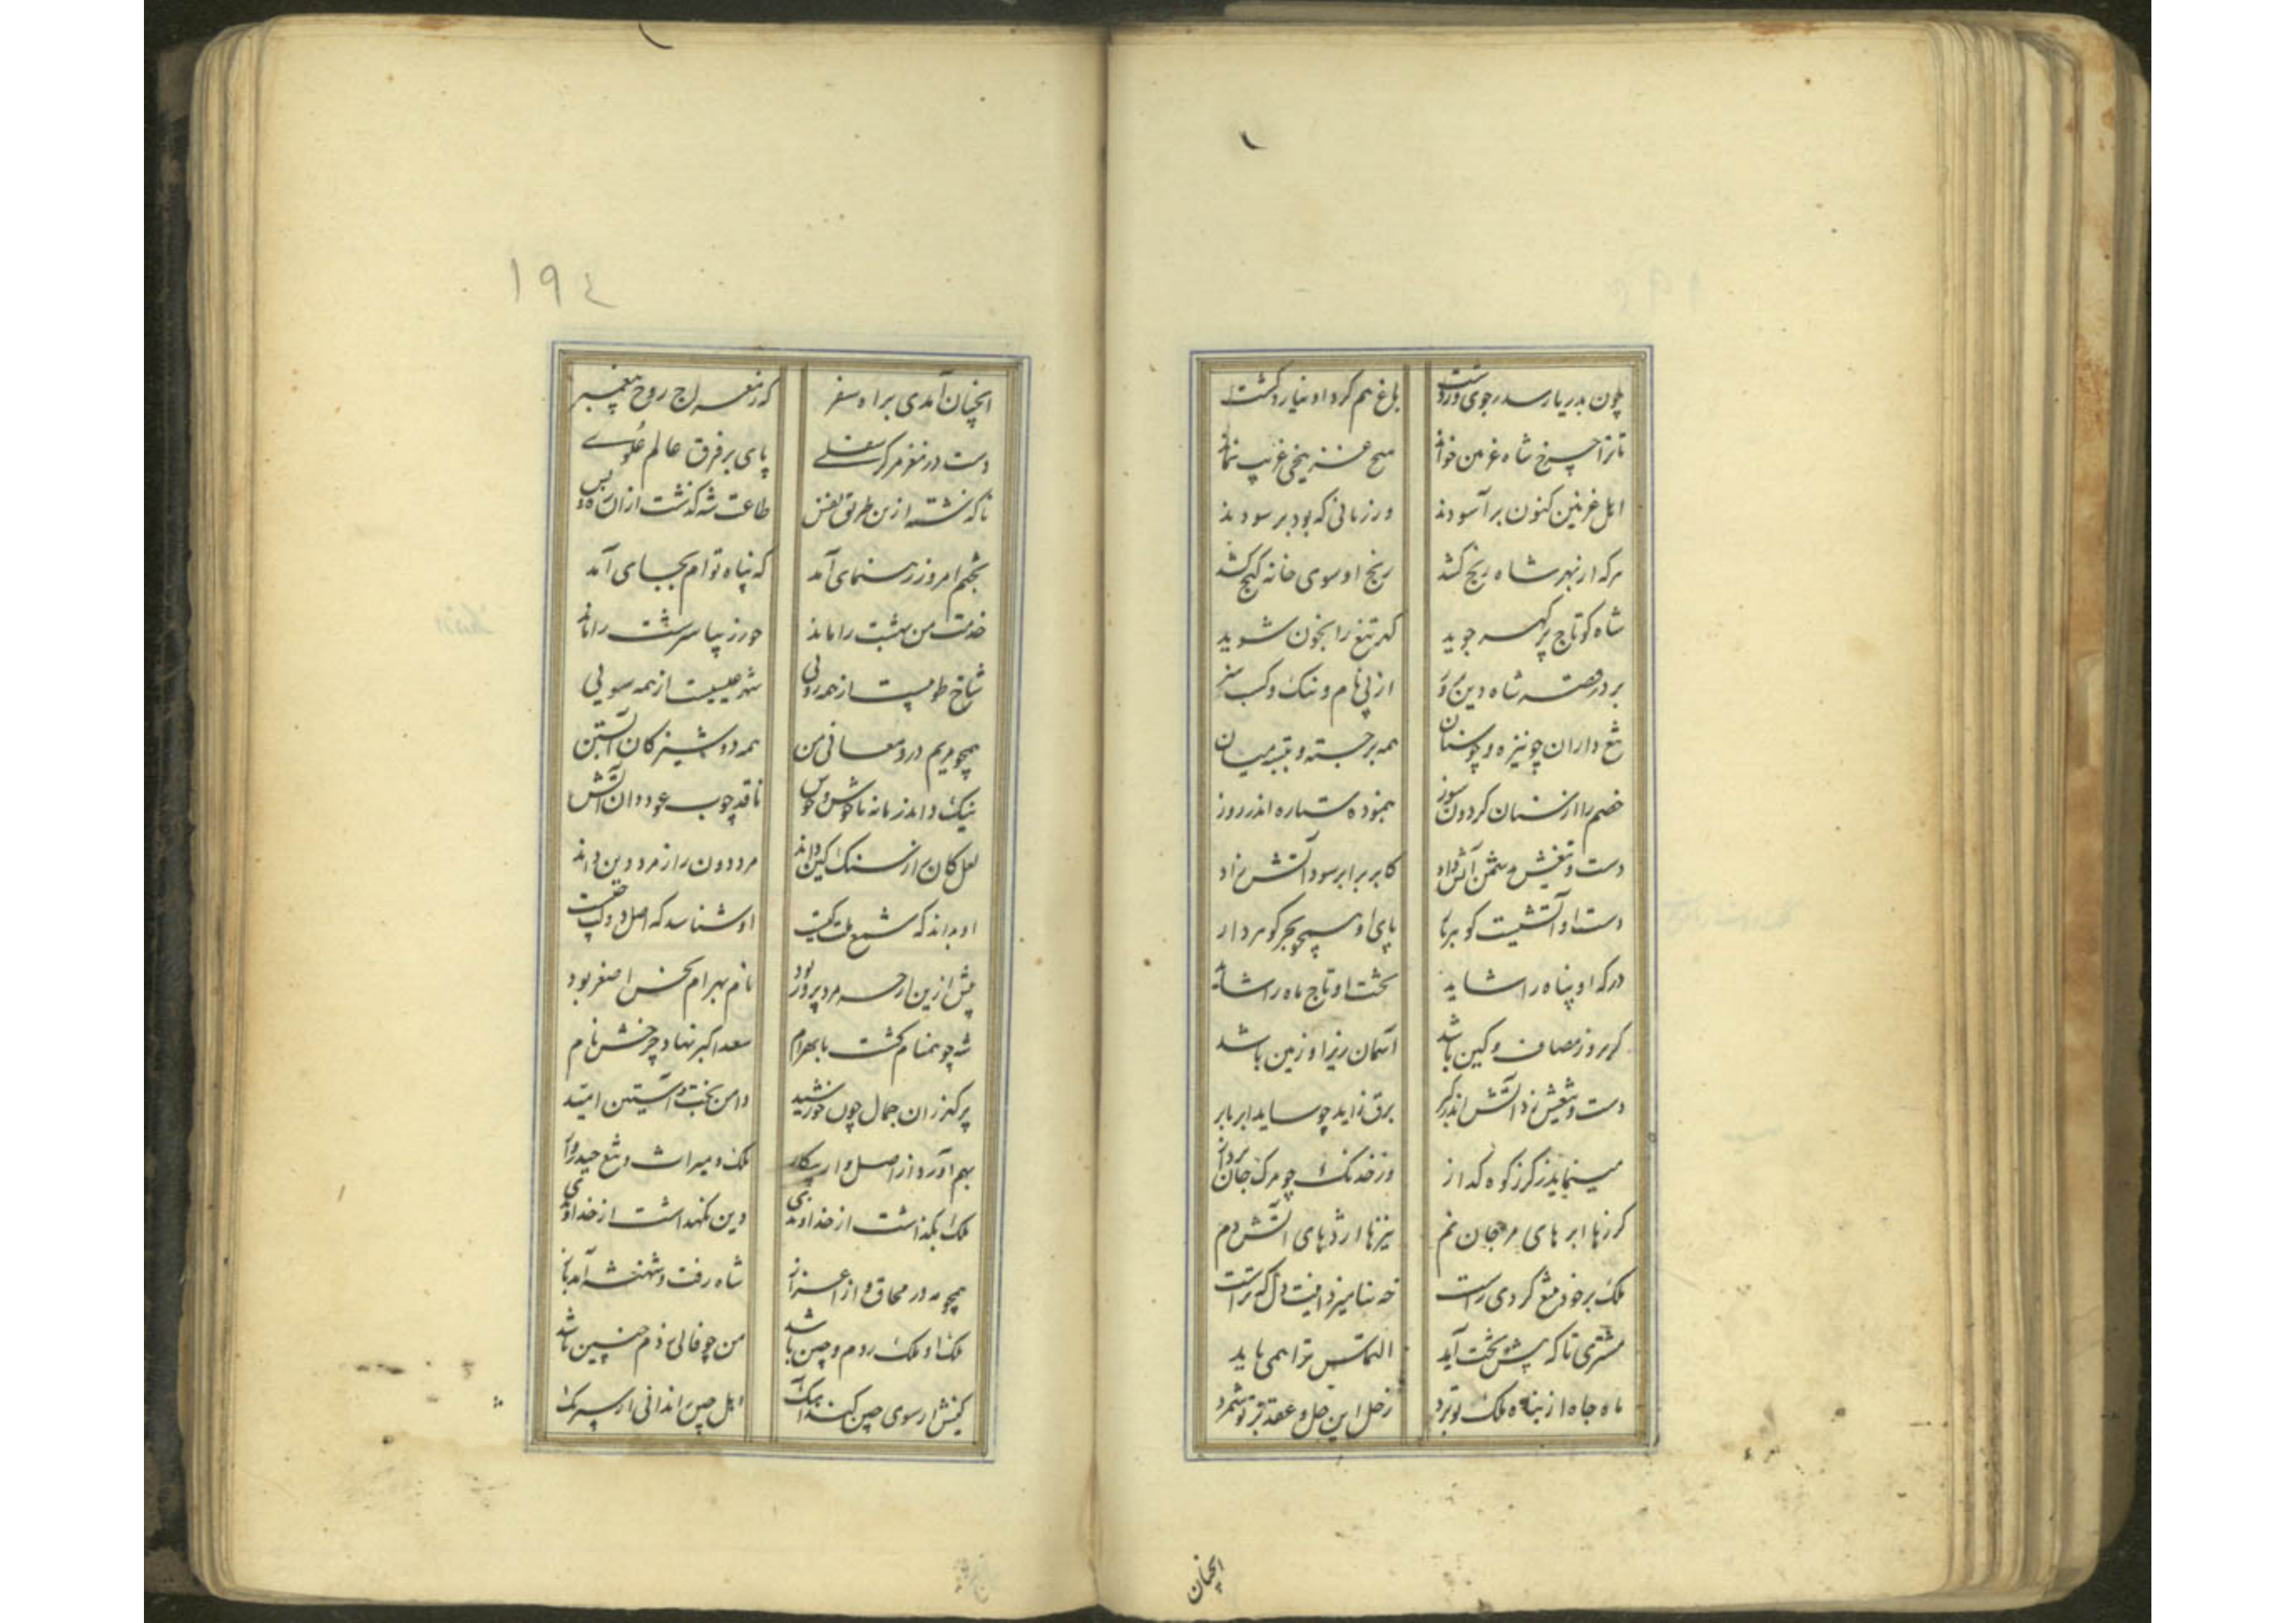 چون بدریا رسد ز جوی درشت
بلغ هم کرد او نیارد گشت
تا ترا چرخ شاه غزنین خواند
هیچ غزنیجی غریب نماند
اهل غزنین کنون برآسودند
ور زمانی که بود برسودند
هرکه از بهر شاه رنج کشد
رنج او سوی خانه گنج کشد
شاه کو تاج پر گهر جوید
گهر تیغ را بخون شوید
بر در قصه شاه دین
از پی نام و ننگ و کسب
تیغ داران چو نیزه و چو سنان
همه برجسته و ببسته میان
خصم را از سنان گردون سوز
بنموده ستاره اندر روز
دست و تیغش دشمن آتش داد
کابر برابر سود آتش زاد
دست او آتشیست گوهربار
پای او همچو بحر گوهردار
درگه او پناه را شاید
تخت او تاج ماه را شاید
گر بروز مصاف و کین باشد
آسمان زیر او زمین باشد
دست و تیغش زد آتش اندر گبر
برق زاید چو ساید ابر بابر
مینماید ز گرز کوه گداز
وز خدنگ چو مرگ جان
گرزها ابرهای مرجان نم
نیزها اژدهای آتش دم
ملک بر خود بتیغ کردی راست
خه بنامیزد اینت دل که تراست
مشتری تا که پیش تخت آید
التماس ترا همی باید
ماه جاه از پناه ملک تو برد
زحل این حل و عقد بر تو شمرد
انچنان
۱۹٤
انچنان آمدی براه سفر
که ز معراج روح پیغمبر
دست در مغز مرکز سفلی
پای بر فرق عالم علوی
ناگذشته ازین طریق نفس
طاعت شه گذشت از آن ره و بس
بختم امروز رهنمای آمد
که پناه توام بجای آمد
خدمت من بهشت را ماند
حور زیبا سرشت را ماند
شاخ طوبیست از همه رویی
شهر عیسیست از همه سویی
همچو مریم درو معانی من
همه دوشیزگان آبستن
نیک داند زمانه ناخوش و خوش
ناقد چوب عود دان آتش
لعل کان را ز سنگ کین داند
مرد دون را ز مرد دین داند
او بداند که شمع ملت کیست
او شناسد که اصل دولت چیست
پیش ازین ارچه مردپرور بود
نام بهرام نحس اصغر بود
شه چو همنام گشت با بهرام
سعد اکبر نهاد چرخش نام
پر گهر زان جمال چون خورشید
دامن بخت و آستین امید
بهم آورد از اصل و از پیکار
ملک و میراث و تیغ حیدروار
ملک نگذاشت از خداوندی
دین نگهداشت از خداوندی
همچو مه در محاق و از اعزاز
شاه رفت و شهنشه آمد باز
ملک او ملک روم و چین باشد
من چو فالی زدم چنین باشد
کینش ار سوی چین کند آهنگ
اهل چین را ندانی از سر سنگ